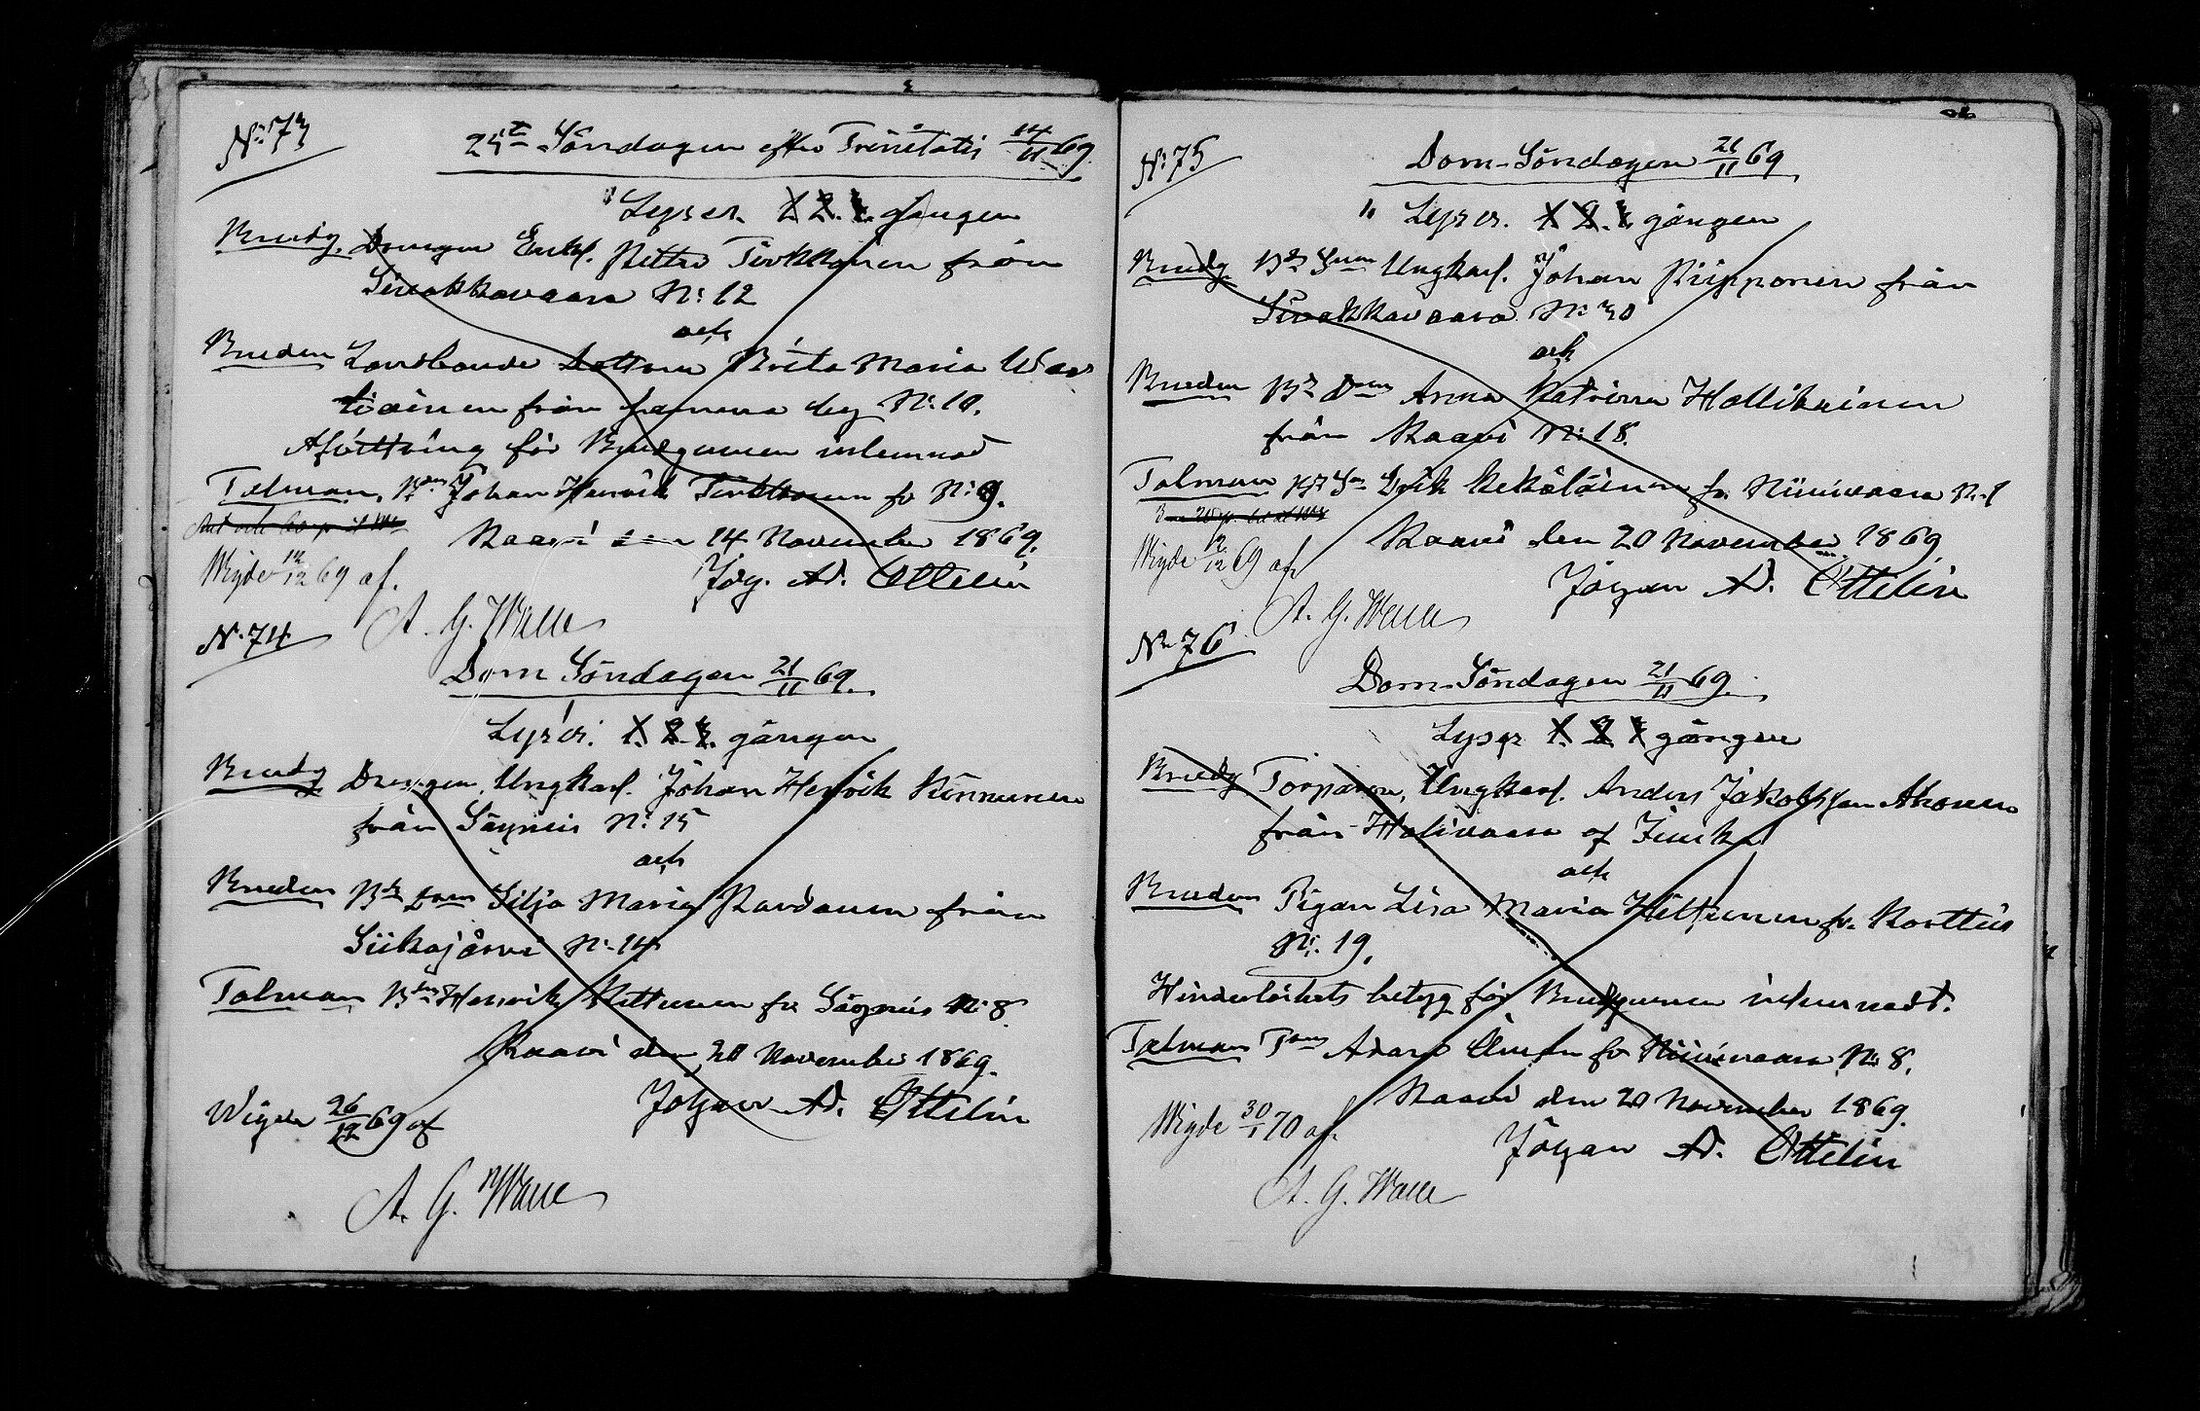 N:o 73
25te Söndagen efter Trinitatis 14/11 69.
Lyses. 1. 2. 3. gången
Brudg. Drengen Enkl. Petter Tirkkonen från
Sivakkavaara N:o 12
och
Bruden Landbonde Dottren Brita Maria War
tiainen från samma by N:o 10.
Afvittring för Brudgumen inlemnad
Talman, Johan Henrik Tirkkonen fr N:o 9.
Kaavi den 14 November 1869.
Wigde 12/12 69 af. Joh. Ad. Ottelin
A. G. Walle
N:o 74
Dom Söndagen 21/11 69.
Lyses. 1. 2. 3. gången
Brudg Drengen, Ungkarl. Johan Henrik Kinnunen
från Säyneis N:o 15
och
Bruden Bd Dren Silja Maria Pardanen från
Siikajärvi N:o 14
Talman Bdn Henrik Kettunen fr Säyneis N:o 8.
Kaavi den 20 November 1869.
Wigde 26/12 69 af Johan Ad. Ottelin
A. G. Walle
N:o 75
Dom-Söndagen 21/11 69
Lyses. 1 2. 3. gången
Brudg Bd Snen Ungkarl. Johan Piipponen från
Sivakkavaara N:o 30
och
Bruden Bd Dren Anna Katrina Hallikainen
från Kaavi N:o 18.
Talman Bd Sn Erik Kekäläinen fr. Niinivaara N:o 1
Kaavi den 20 November 1869
Wigde 12/12 69 af Johan Ad. Ottelin
A. G. Walle
N:o 76
Dom-Söndagen 21/11 69.
Lyses 1. 2 3 gången
Brudg Torparen, Ungkarl. Anders Jakobsson Ahonen
från Halivaara af Juuka
och
Bruden Pigan Lisa Maria Hiltunen fr. Kortteis
N:o 19.
Hinderlöshets betyg för Brudgumen inlemnadt.
Talman Adam fr Niinivaara N:o 8.
Kaavi den 20 November 1869.
Wigde 30/1 70 af. Johan Ad. Ottelin
A. G. Walle